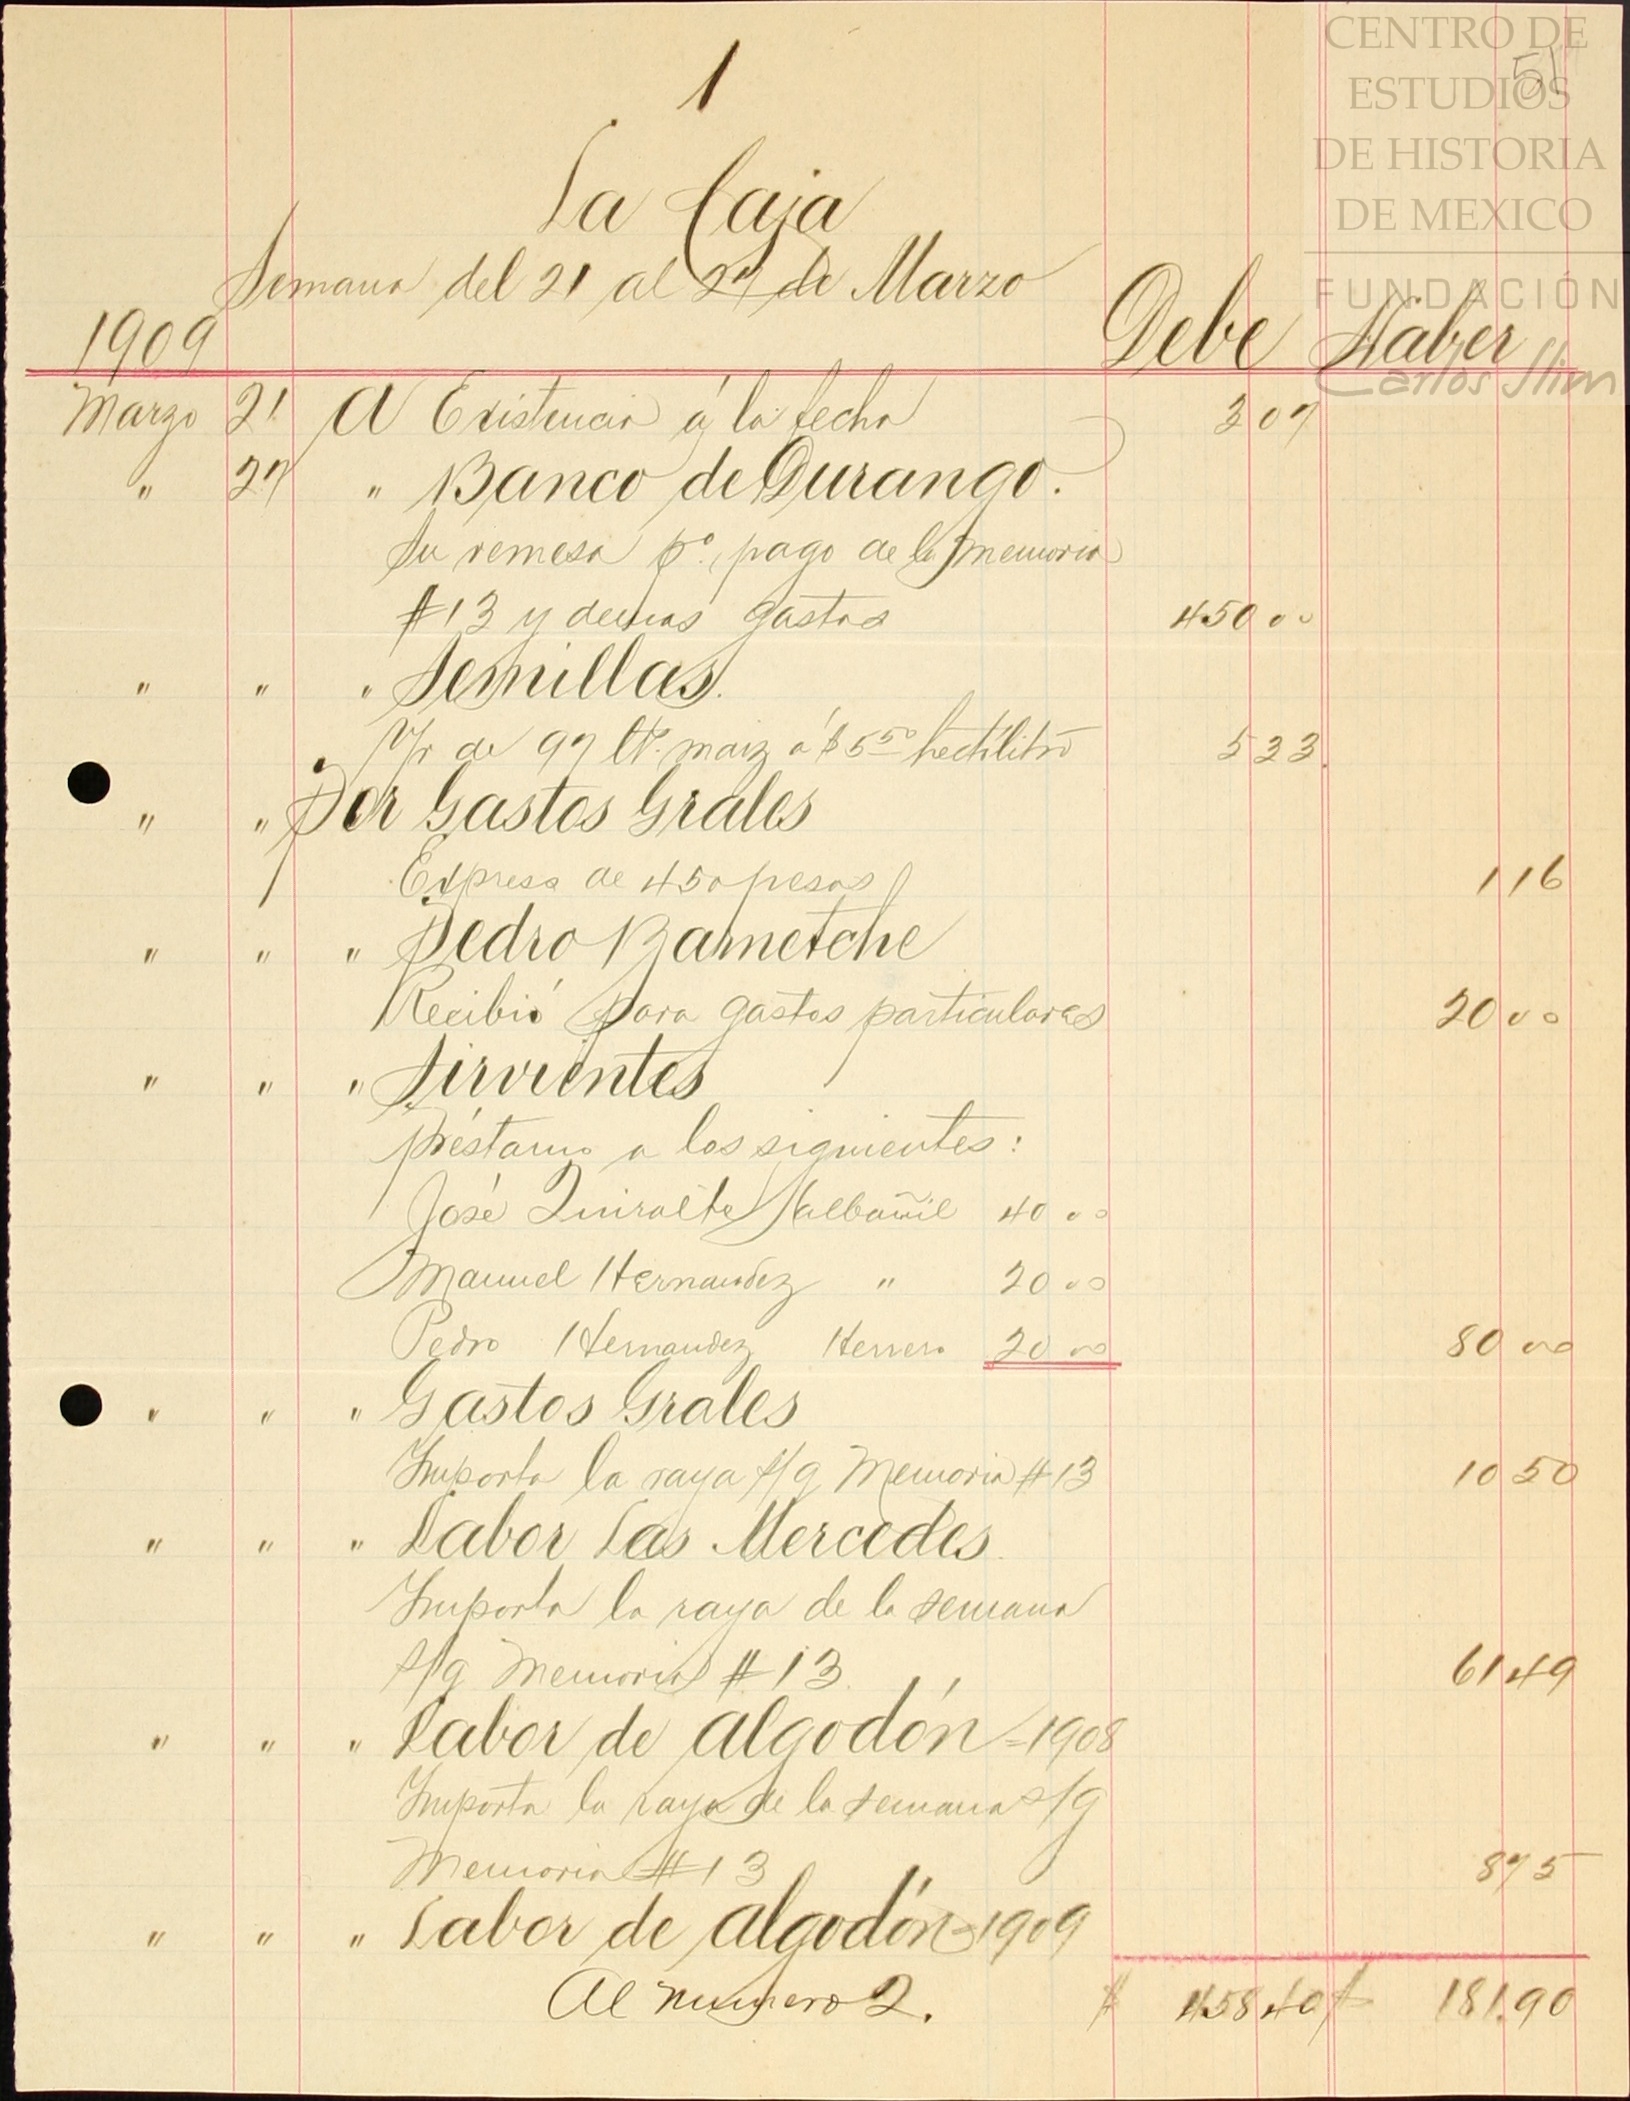 1
51
CENTRO DE
ESTUDIOS
DE HISTORIA
DE MEXICO
FUNDACIÓN
Carlos Slim
La Caja
Semana del 21 al 27 de Marzo
1909 Debe Haber
Marzo 21 A Existencia á la fecha 3 07
" 27 " Banco de Durango.
Su remesa pº. pago de la memoria
#13 y demas gastos 450 00
" " " Semillas.
V/r de 97 lt. maiz á $5 50 hectólitro 5 33
" " Por Gastos Grales
Expreso de 450 pesos 1 16
" " " Pedro Barnetche
Recibió para gastos particulares 20 00
" " " Sirvientes
Préstamo a los siguientes:
José Quiralte albañil 40 00
Manuel Hernandez " 20 00
Pedro Hernandez Herrero 20 00 80 00
" " " Gastos Grales
Importa la raya s/g Memoria #13 10 50
" " " Labor Las Mercedes
Importa la raya de la semana
s/g Memoria #13. 61 49
" " " Labor de algodón = 1908
Importa la raya de la semana s/g
Memoria #13 8 75
" " " Labor de algodón = 1909
Al numero 2. $ 458 40 $ 181.90